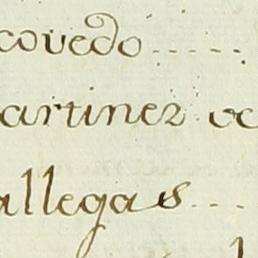 covedo
artinez oc
allegas